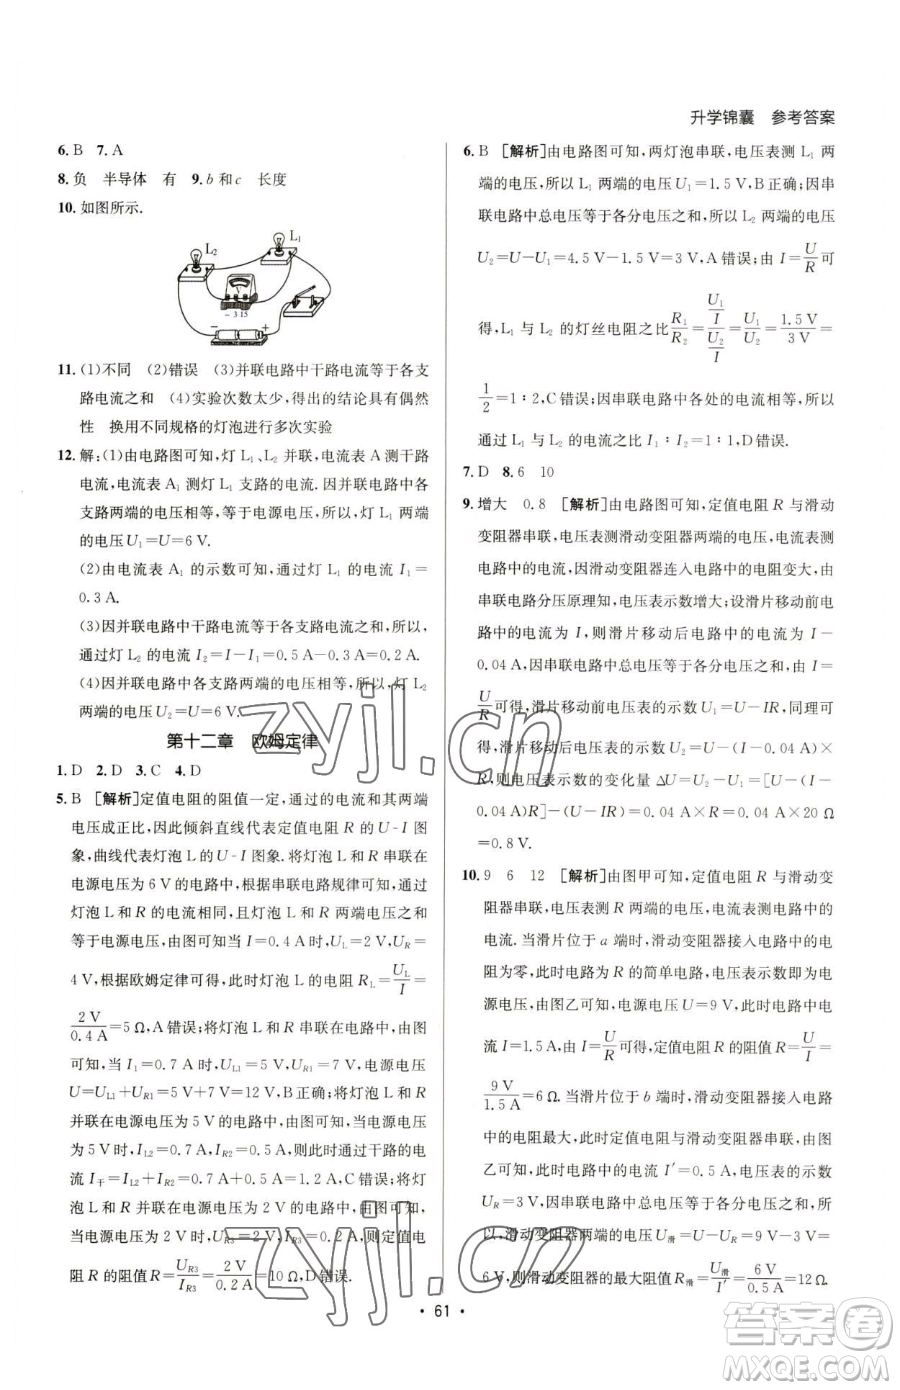 升学锦囊 参考答案
6. B 7. A
8. 负 半导体 有 9. b 和 c 长度
10. 如图所示.
L₂ L₁
－ 3 15
－ ＋
11. (1)不同 (2)错误 (3)并联电路中干路电流等于各支
路电流之和 (4)实验次数太少,得出的结论具有偶然
性 换用不同规格的灯泡进行多次实验
12. 解:(1)由电路图可知,灯 L₁、L₂ 并联,电流表 A 测干路
电流,电流表 A₁ 测灯 L₁ 支路的电流.因并联电路中各
支路两端的电压相等,等于电源电压,所以,灯 L₁
两端的电压 U₁=U=6 V.
(2)由电流表 A₁ 的示数可知,通过灯 L₁ 的电流 I₁=
0.3 A.
(3)因并联电路中干路电流等于各支路电流之和,所以,
通过灯 L₂ 的电流 I₂=I-I₁=0.5 A-0.3 A=0.2 A.
(4)因并联电路中各支路两端的电压相等,所以,灯 L₂
两端的电压 U₂=U=6 V.
第十二章 欧姆定律
1. D 2. D 3. C 4. D
5. B [解析]定值电阻的阻值一定,通过的电流和其两端
电压成正比,因此倾斜直线代表定值电阻 R 的 U-I 图
象,曲线代表灯泡 L 的 U-I 图象.将灯泡 L 和 R 串联在
电源电压为 6 V 的电路中,根据串联电路规律可知,通
过灯泡 L 和 R 的电流相同,且灯泡 L 和 R 两端电压之和
等于电源电压,由图可知当 I=0.4 A 时,U_L=2 V,U_R=
4 V,根据欧姆定律可得,此时灯泡 L 的电阻 R_L=U_L/I=
2 V/0.4 A=5 Ω,A 错误;将灯泡 L 和 R 串联在电路中,由图
可知,当 I₁=0.7 A 时,U_L1=5 V,U_R1=7 V,电源电压
U=U_L1+U_R1=5 V+7 V=12 V,B 正确;将灯泡 L 和 R
并联在电源电压为 5 V 的电路中,由图可知,当电源电压
为 5 V 时,I_L2=0.7 A,I_R2=0.5 A,此时通过干路的电
流 I_干=I_L2+I_R2=0.7 A+0.5 A=1.2 A,C 错误;将灯
泡 L 和 R 并联在电源电压为 2 V 的电路中,由图可知,
当电源电压为 2 V 时,U_R3=2 V,I_R3=0.2 A,则定值电
阻 R 的阻值 R=U_R3/I_R3=2 V/0.2 A=10 Ω,D 错误.
6. B [解析]由电路图可知,两灯泡串联,电压表测 L₁ 两
端的电压,所以 L₁ 两端的电压 U₁=1.5 V,B 正确;因串
联电路中总电压等于各分电压之和,所以 L₂ 两端的电压
U₂=U-U₁=4.5 V-1.5 V=3 V,A 错误;由 I=U/R可
得,L₁ 与 L₂ 的灯丝电阻之比R₁/R₂=(U₁/I)/(U₂/I)=U₁/U₂=1.5 V/3 V=
1/2=1∶2,C 错误;因串联电路中各处的电流相等,所以
通过 L₁ 与 L₂ 的电流之比 I₁∶I₂=1∶1,D 错误.
7. D 8. 6 10
9. 增大 0.8 [解析]由电路图可知,定值电阻 R 与滑动
变阻器串联,电压表测滑动变阻器两端的电压,电流表测
电路中的电流.因滑动变阻器连入电路中的电阻变大,由
串联电路分压原理知,电压表示数增大;设滑片移动前电
路中的电流为 I,则滑片移动后电路中的电流为 I-
0.04 A,因串联电路中总电压等于各分电压之和,由 I=
U/R可得,滑片移动前电压表的示数 U₁=U-IR,同理可
得,滑片移动后电压表的示数 U₂=U-(I-0.04 A)×
R,则电压表示数的变化量 ΔU=U₂-U₁=[U-(I-
0.04 A)R]-(U-IR)=0.04 A×R=0.04 A×20 Ω
=0.8 V.
10. 9 6 12 [解析]由图甲可知,定值电阻 R 与滑动变
阻器串联,电压表测 R 两端的电压,电流表测电路中的
电流.当滑片位于 a 端时,滑动变阻器接入电路中的电
阻为零,此时电路为 R 的简单电路,电压表示数即为电
源电压,由图乙可知,电源电压 U=9 V,此时电路中电
流 I=1.5 A,由 I=U/R可得,定值电阻 R 的阻值 R=U/I=
9 V/1.5 A=6 Ω.当滑片位于 b 端时,滑动变阻器接入电路
中的电阻最大,此时定值电阻与滑动变阻器串联,由图
乙可知,此时电路中的电流 I′=0.5 A,电压表的示数
U_R=3 V,因串联电路中总电压等于各部分电压之和,所
以,滑动变阻器两端的电压 U_滑=U-U_R=9 V-3 V=
6 V,则滑动变阻器的最大阻值 R_滑=U_滑/I′=6 V/0.5 A=12 Ω.
• 61 •
zyjl.cn
zyjl.cn
答案圈
MXQE.COM